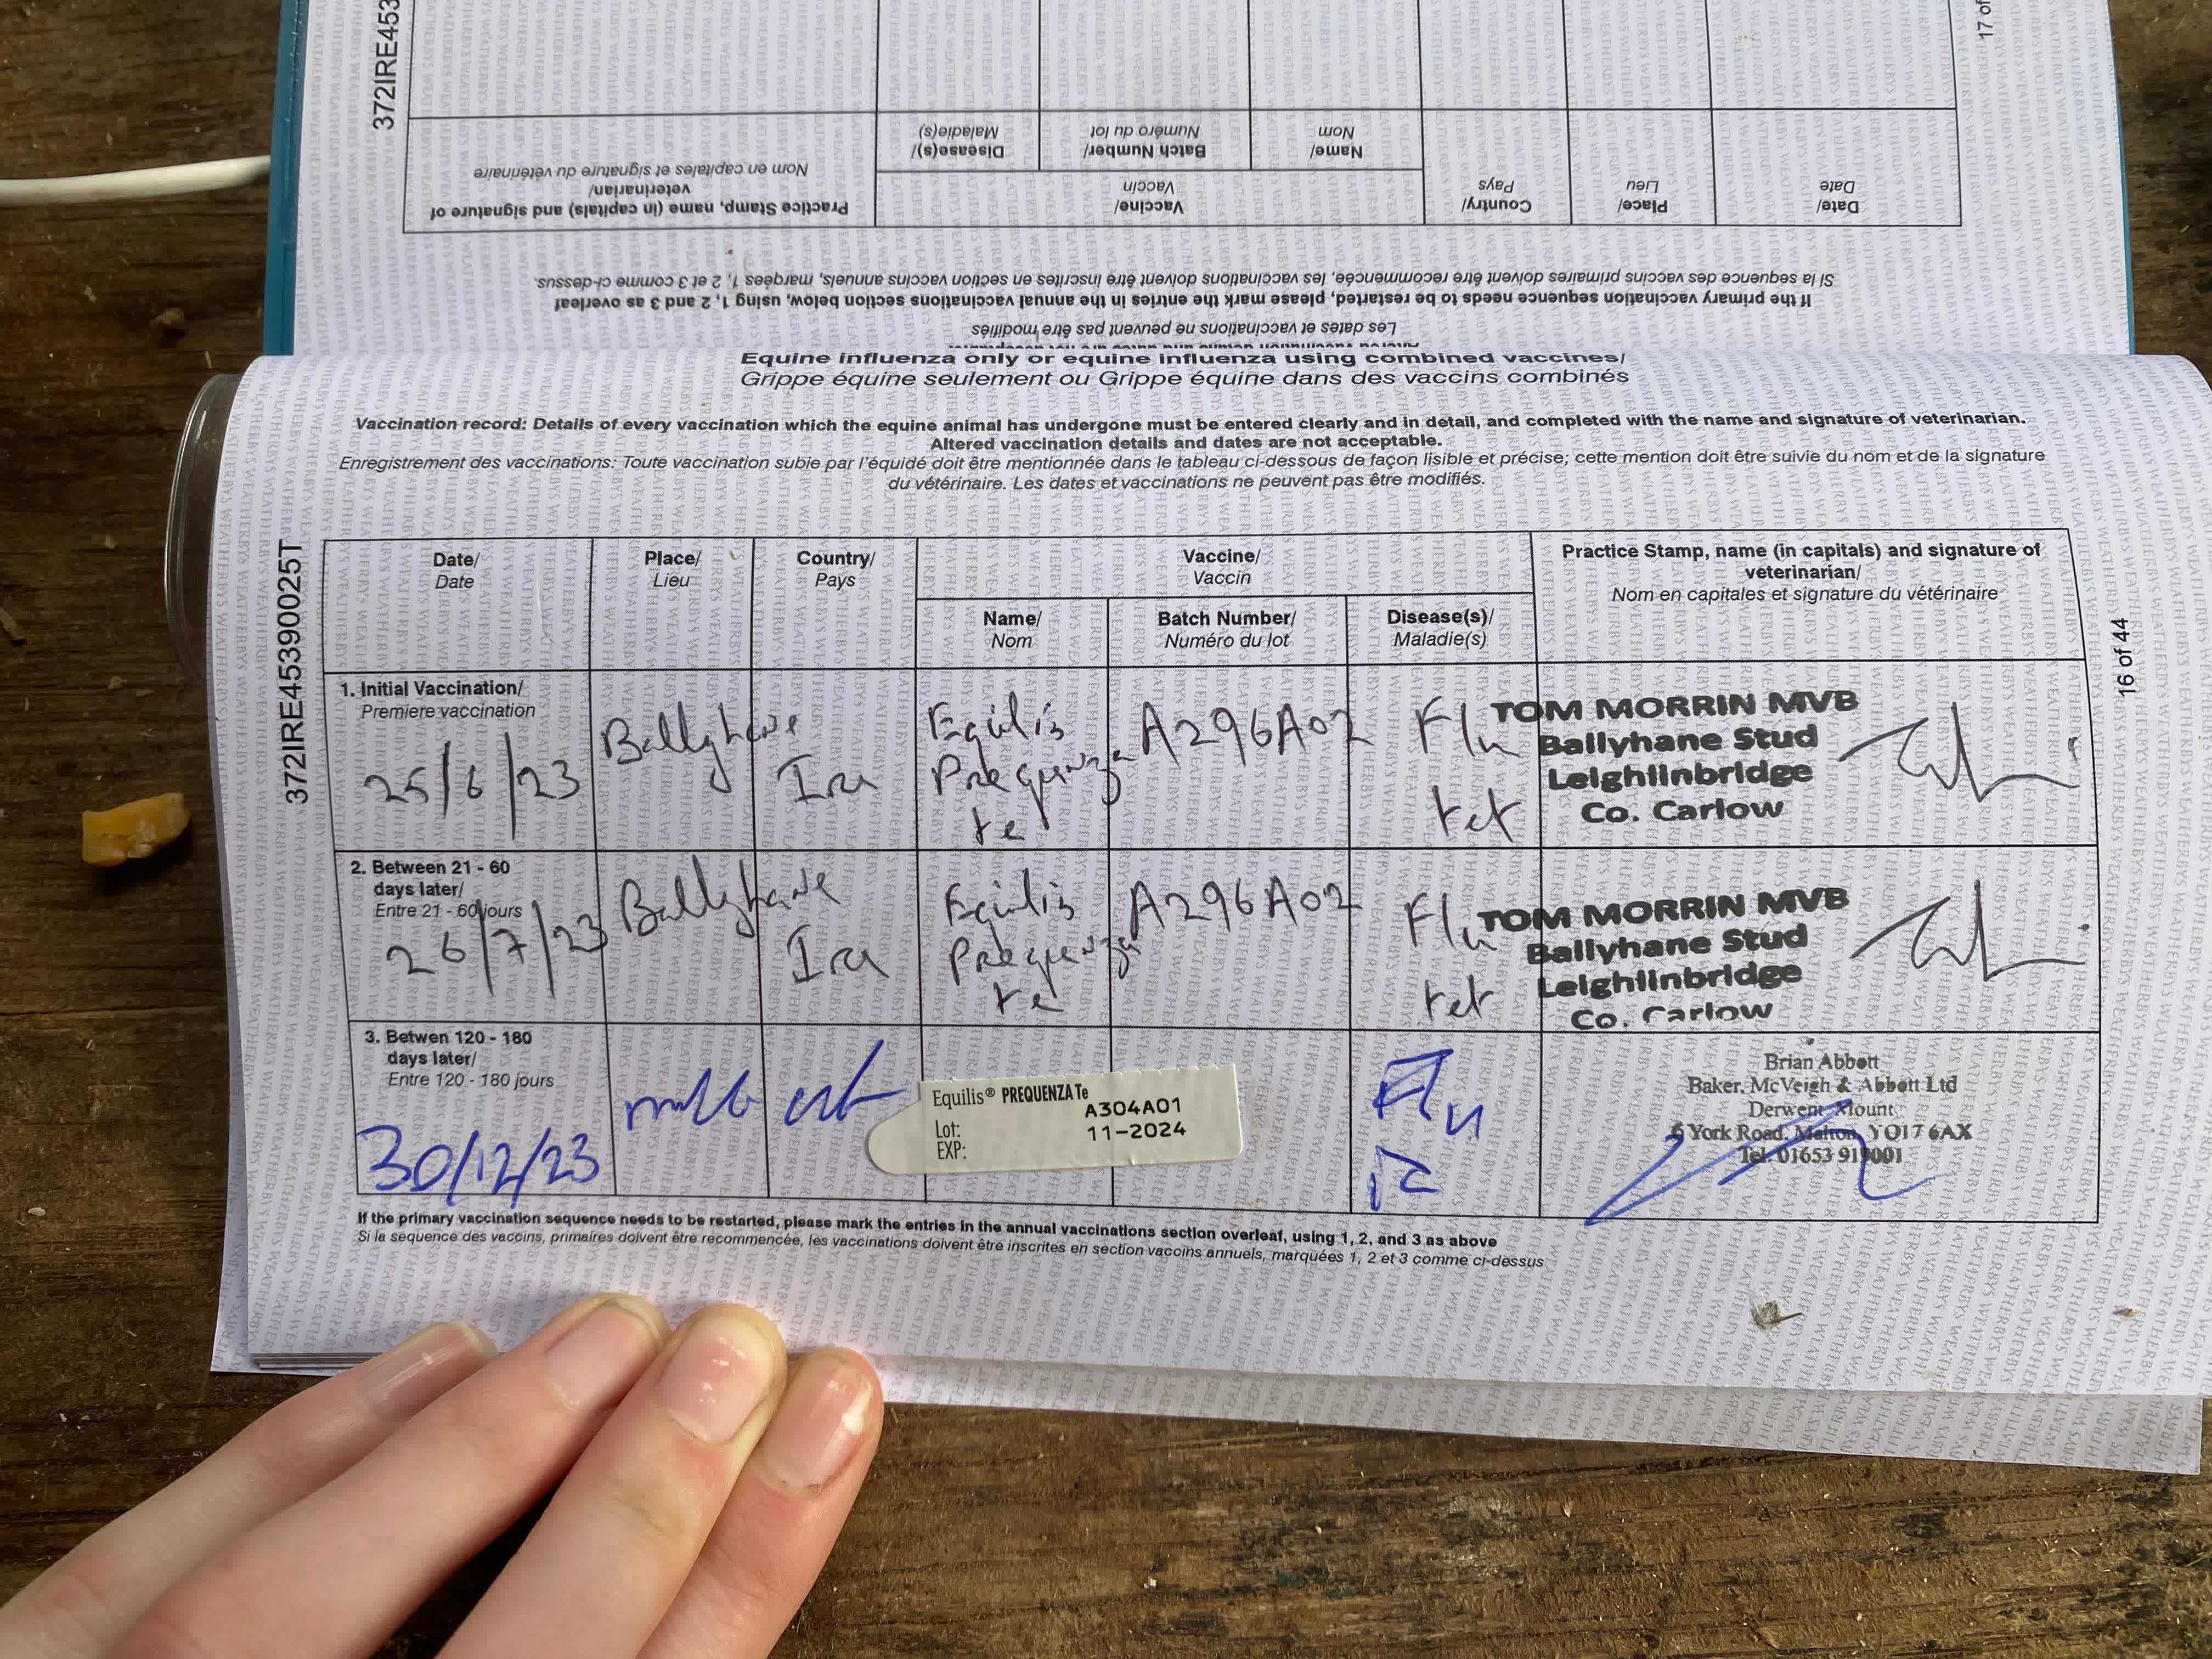 372IRE453
17 of
Date/
Date
Place/
Lieu
Country/
Pays
Vaccine/
Vaccin
Name/
Nom
Batch Number/
Numéro du lot
Disease(s)/
Maladie(s)
Practice Stamp, name (in capitals) and signature of
veterinarian/
Nom en capitales et signature du vétérinaire
If the primary vaccination sequence needs to be restarted, please mark the entries in the annual vaccinations section below, using 1, 2 and 3 as overleaf
Si la sequence des vaccins primaires doivent être recommencée, les vaccinations doivent être inscrites en section vaccins annuels, marqées 1, 2 et 3 comme ci-dessus.
Les dates et vaccinations ne peuvent pas être modifiés
Equine influenza only or equine influenza using combined vaccines/
Grippe équine seulement ou Grippe équine dans des vaccins combinés
Vaccination record: Details of every vaccination which the equine animal has undergone must be entered clearly and in detail, and completed with the name and signature of veterinarian.
Altered vaccination details and dates are not acceptable.
Enregistrement des vaccinations: Toute vaccination subie par l'équidé doit être mentionnée dans le tableau ci-dessous de façon lisible et précise; cette mention doit être suivie du nom et de la signature
du vétérinaire. Les dates et vaccinations ne peuvent pas être modifiés.
372IRE45390025T
16 of 44
Date/
Date
Place/
Lieu
Country/
Pays
Vaccine/
Vaccin
Name/
Nom
Batch Number/
Numéro du lot
Disease(s)/
Maladie(s)
Practice Stamp, name (in capitals) and signature of
veterinarian/
Nom en capitales et signature du vétérinaire
1. Initial Vaccination/
Premiere vaccination
25/6/23
Ballyhane
Ire
Equilis
Prequenza
te
A296A02
Flu
tet
TOM MORRIN MVB
Ballyhane Stud
Leighlinbridge
Co. Carlow
2. Between 21 - 60
days later/
Entre 21 - 60 jours
26/7/23
Ballyhane
Ire
Equilis
Prequenza
te
A296A02
Flu
tet
TOM MORRIN MVB
Ballyhane Stud
Leighlinbridge
Co. Carlow
3. Betwen 120 - 180
days later/
Entre 120 - 180 jours
30/12/23
Equilis® PREQUENZA Te
A304A01
Lot:
11-2024
EXP:
Flu
Brian Abbott
Baker, McVeigh & Abbott Ltd
Derwent Mount
6 York Road, Malton, YO17 6AX
Tel. 01653 919001
If the primary vaccination sequence needs to be restarted, please mark the entries in the annual vaccinations section overleaf, using 1, 2, and 3 as above
Si la sequence des vaccins, primaires doivent être recommencée, les vaccinations doivent être inscrites en section vaccins annuels, marquées 1, 2 et 3 comme ci-dessus